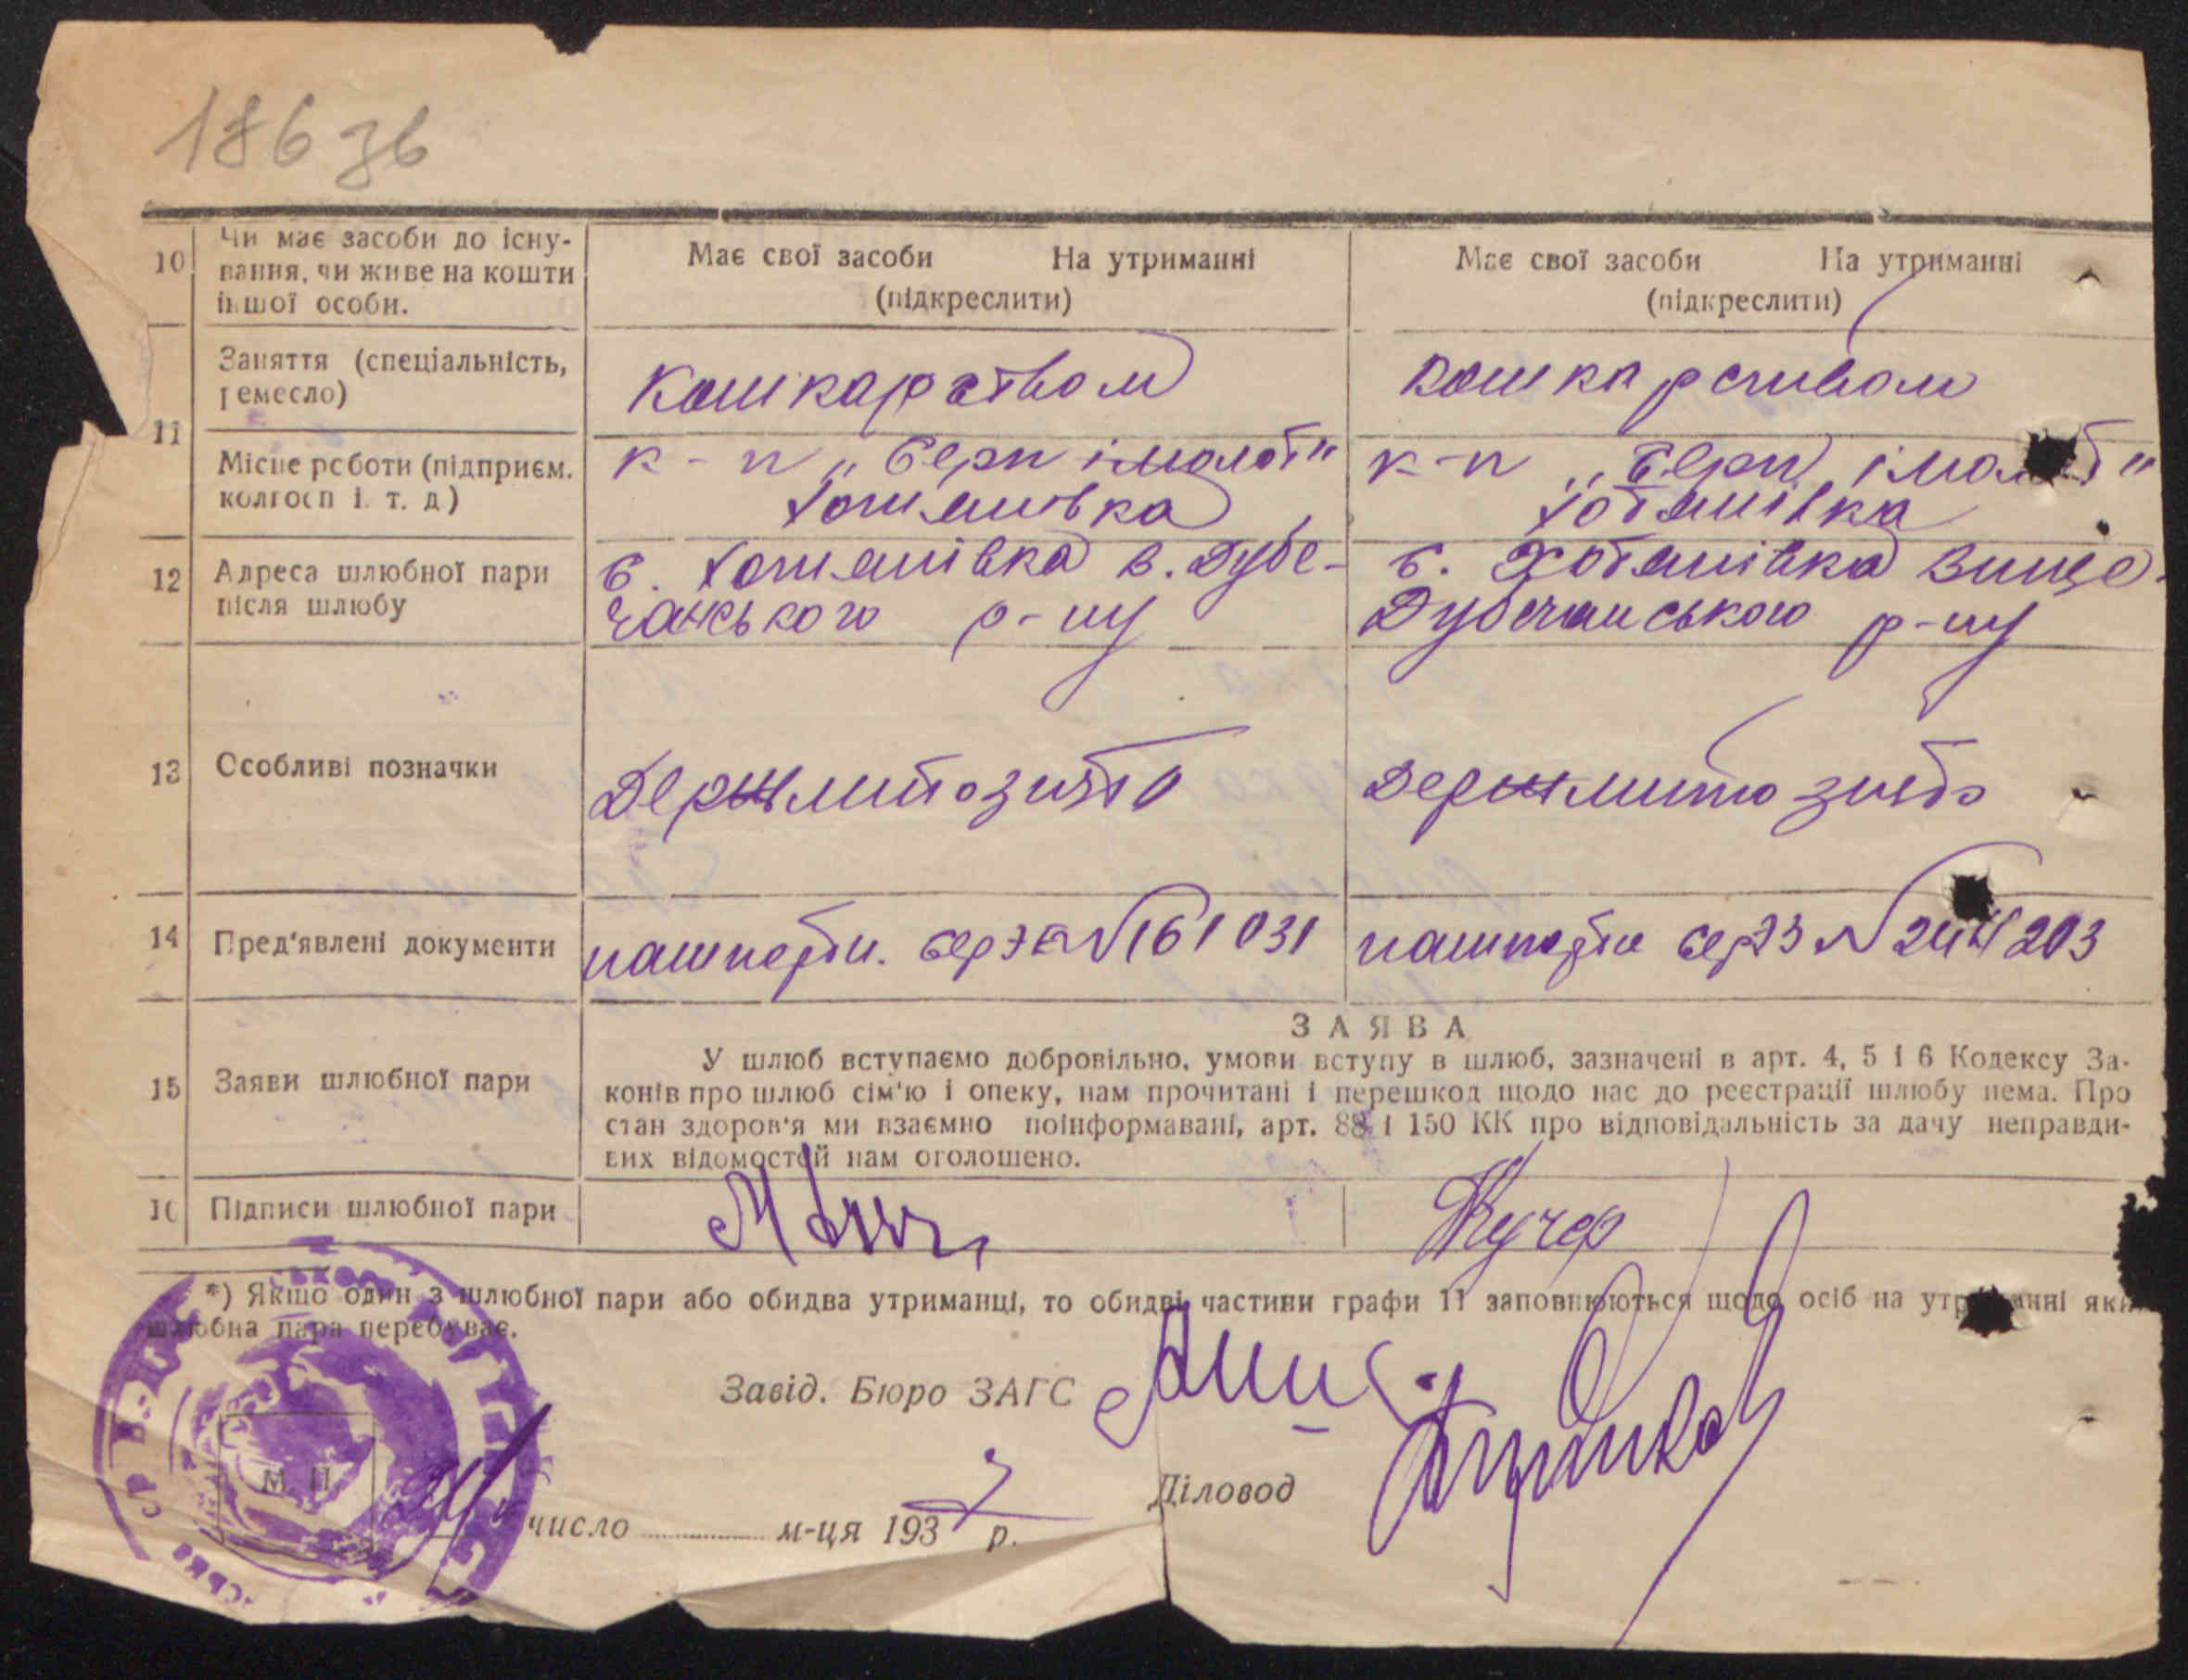 186 зв
10 Чи має засоби до існу-
вання, чи живе на кошти
іншої особи.
Має свої засоби На утриманні
(підкреслити)
Має свої засоби На утриманні
(підкреслити)
11
Заняття (спеціальність,
ремесло)
Кошкарством
Кошкарством
Місце роботи (підприєм.
колгосп і. т. д)
к-п „Серп і молот"
Хотянівка
к-п „Серп і молот"
Хотянівка
12 Адреса шлюбної пари
після шлюбу
с. Хотянівка В. Дубе-
чанського р-ну
с. Хотянівка Вище-
Дубечанського р-ну
13 Особливі позначки
Держмито знято
Держмито знято
14 Пред'явлені документи
пашпорти. сер № 161031
пашпорти сер №
15 Заяви шлюбної пари
ЗАЯВА
У шлюб вступаємо добровільно, умови вступу в шлюб, зазначені в арт. 4, 5 і 6 Кодексу За-
конів про шлюб сім'ю і опеку, нам прочитані і перешкод щодо нас до реєстрації шлюбу нема. Про
стан здоров'я ми взаємно поінформавані, арт. 88 і 150 КК про відповідальність за дачу неправди-
вих відомостей нам оголошено.
16 Підписи шлюбної пари
Кучер
*) Якщо один з шлюбної пари або обидва утриманці, то обидві частини графи 11 заповнюються щодо осіб на утриманні яких
шлюбна пара перебуває.
Завід. Бюро ЗАГС
М П
24 число м-ця 1937 р.
Діловод